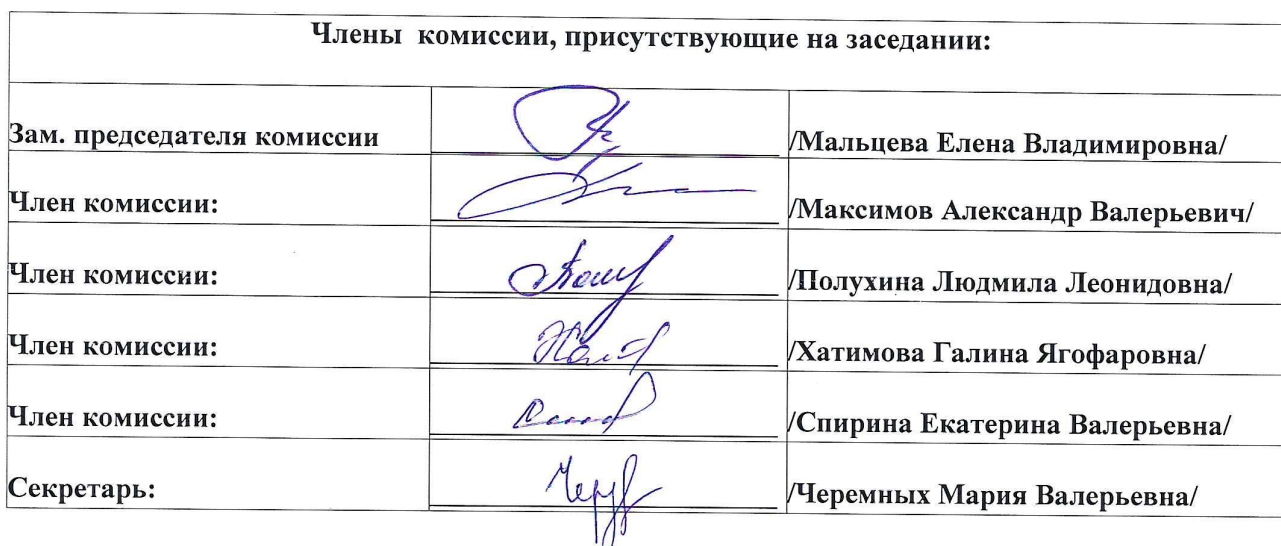 Члены комиссии, присутствующие на заседании:
Зам. председателя комиссии /Мальцева Елена Владимировна/
Член комиссии: /Максимов Александр Валерьевич/
Член комиссии: /Полухина Людмила Леонидовна/
Член комиссии: /Хатимова Галина Ягофаровна/
Член комиссии: /Спирина Екатерина Валерьевна/
Секретарь: /Черемных Мария Валерьевна/